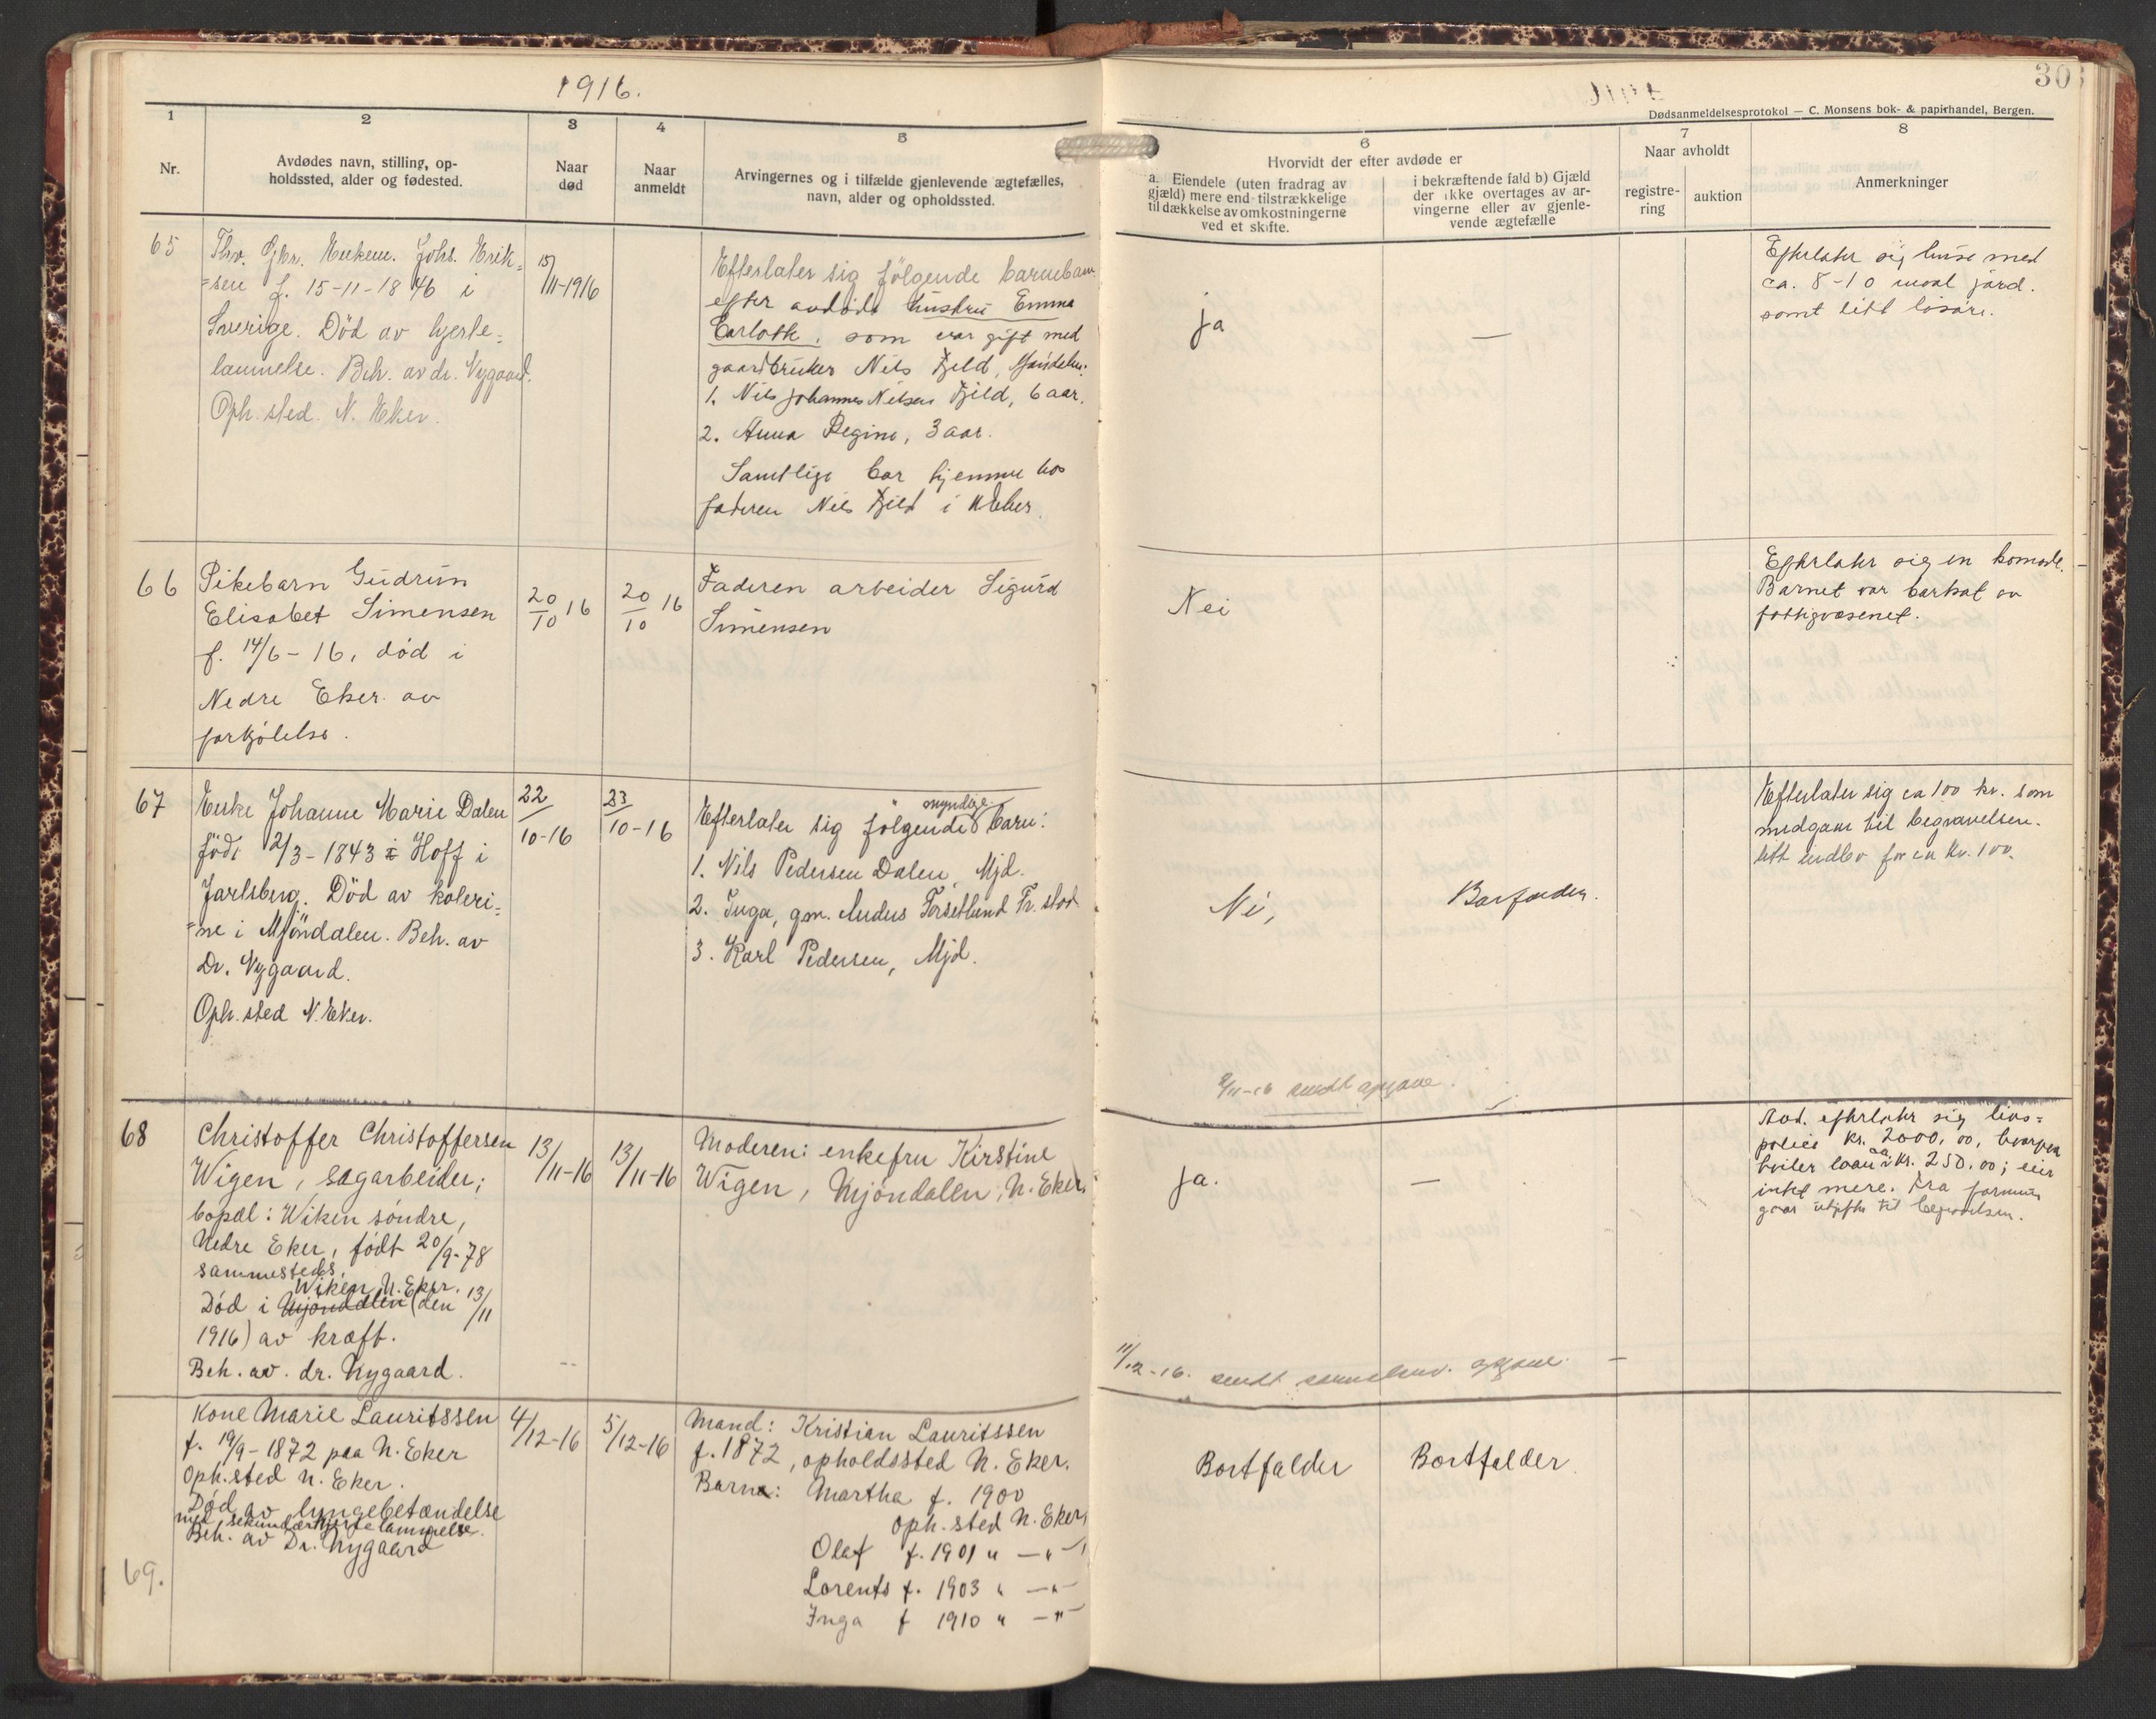 1916.
30
Dødsanmeldelsesprotokol — C. Monsens bok- & papirhandel, Bergen.
1
Nr.
2
Avdødes navn, stilling, op-
holdssted, alder og fødested.
3
Naar
død
4
Naar
anmeldt
5
Arvingernes og i tilfælde gjenlevende ægtefælles,
navn, alder og opholdssted.
6
Hvorvidt der efter avdøde er
a. Eiendele (uten fradrag av
gjæld) mere end tilstrækkelige
til dækkelse av omkostningerne
ved et skifte.
i bekræftende fald b) Gjæld
der ikke overtages av ar-
vingerne eller av gjenle-
vende ægtefælle
7
Naar avholdt
registre-
ring
auktion
8
Anmerkninger
65
Enkem. Johs. Erik=
=sen f. 15-11-1846 i
Sverige. Död av hjerte=
lammelse. Beh. av dr. Nygaard.
Oph. sted. N. Eker.
15/11-1916
Efterlater sig følgende barnebarn
efter avdøde hustru Emma
Carlotte, som var gift med
gaardbruker Nils Fjeld, Mjöndalen:
1. Nils Johannes Nilsen Fjeld, 6 aar.
2. Anna Regine, 3 aar.
Samtlige bor hjemme hos
faderen Nils Fjeld i N Eker.
ja
—
Efterlater sig huse med
ca. 8-10 maal jord.
samt litt løsøre.
66
Pikebarn Gudrun
Elisabet Simensen
f. 14/6-16, død i
Nedre Eker av
forkjølelse.
20/10 16
20/10 16
Faderen arbeider Sigurd
Simensen
Nei
Efterlater sig en komode.
Barnet var bortsat av
fattigvæsenet.
67
Enke Johanne Marie Dalen
född 2/3-1843 i Hoff i
Jarlsberg. Död av koleri=
=ne i Mjöndalen. Beh. av
Dr. Nygaard.
Oph. sted N. Eker.
22/10-16
23/10-16
myndige
Efterlater sig følgende barn:
1. Nils Pedersen Dalen, Mjd.
2. Inga, gm. Anders Forsetlund Fr. stad
3. Karl Pedersen, Mjd.
Nei,
Bortfalder.
Efterlater sig ca 100 kr. som
medgaar til begravelsen.
litt indbo for ca kr. 100.
2/11-16 sendt opgave.
68
Christoffer Christoffersen
Wigen, sagarbeider;
bopæl: Wiken söndre,
Nedre Eker, født 20/9-78
sammesteds.
Wiken N. Eker.
Död i Mjöndalen (den 13/11
1916) av kræft.
Beh. av. dr. Nygaard.
13/11-16
13/11-16
Moderen: enkefru Kirstine
Wigen, Mjöndalen, N. Eker.
Ja.
—
Avd. efterlater sig livs=
police kr. 2000,00, hvorpaa
hviler laan kr. 250.00; eier
intet mere. Fra formuen
gaar utgifter til begravelsen.
11/12-16. sendt opgave.
69.
Kone Marie Lauritssen
f. 19/9-1872 paa N. Eker
Oph. sted N. Eker.
Död av lungebetændelse
med sekundær hjertelammelse.
Beh. av Dr. Nygaard
4/12-16
5/12-16
Mand: Kristian Lauritssen
f. 1872, opholdssted N. Eker.
Barn: Martha f. 1900
oph. sted N. Eker
Olaf f. 1901 " —"—
Lorents f. 1903 " —"—
Inga f 1910 " —"—
Bortfalder
Bortfalder.